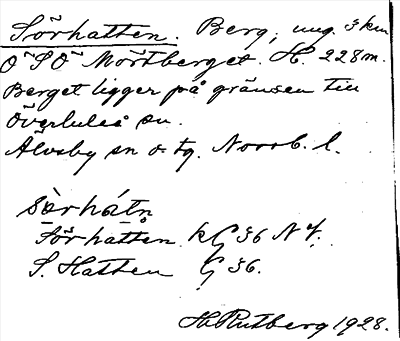 Sörhatten. Berg, ung. 3 km
O ̃ S O ̃ Mörtberget. H. 228 m.
Berget ligger på gränsen till
Överluleå sn.
Älvsby sn o. tg. Norrb. l.
sòrhátn̥
Sörhatten kG 36 NV.
S. Hatten G 36.
H. Rutberg 1928.